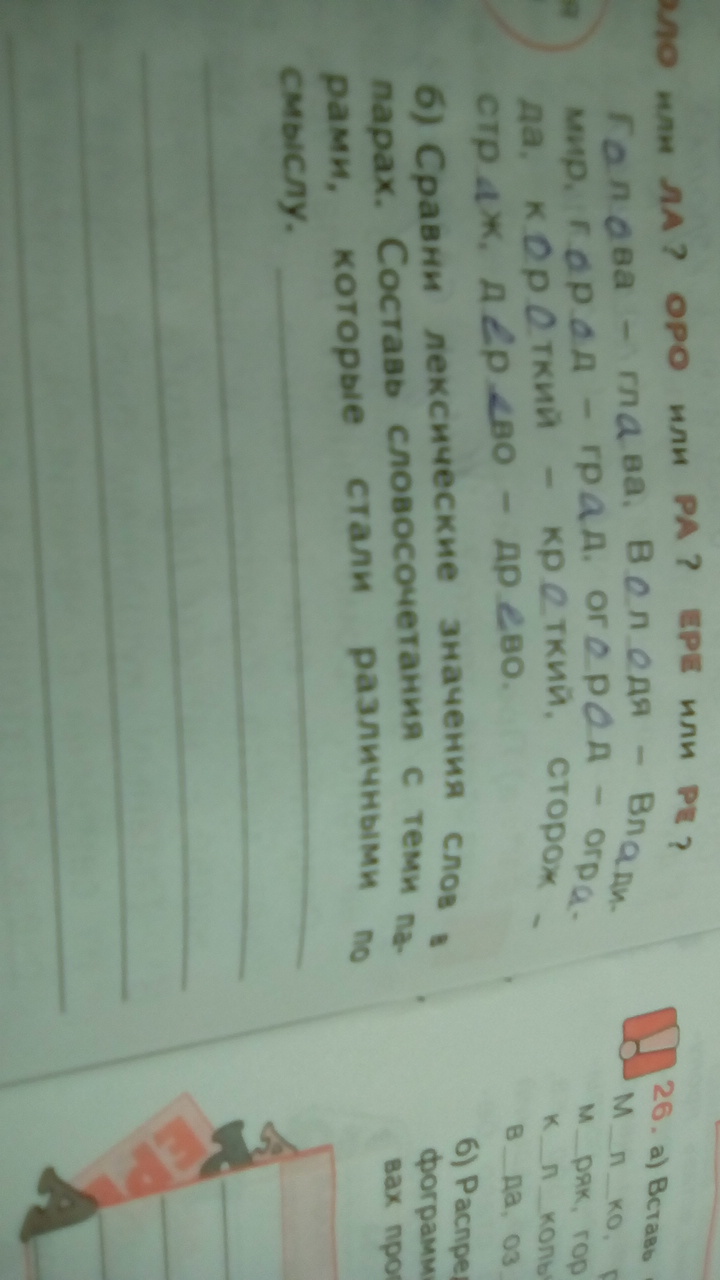 ОЛО или ЛА? ОРО или РА? ЕРЕ или РЕ?
Голова – глава, Володя – Влади-
мир, город – град, огород – огра-
да, короткий – кроткий, сторож –
страж, дерево – древо.
б) Сравни лексические значения слов в
парах. Составь словосочетания с теми па-
рами, которые стали различными по
смыслу.
26. а) Вставь
м_л_ко,
м_ряк, гор
к_л_коль
в_да, оз
б) Распред
фограмм
вах про